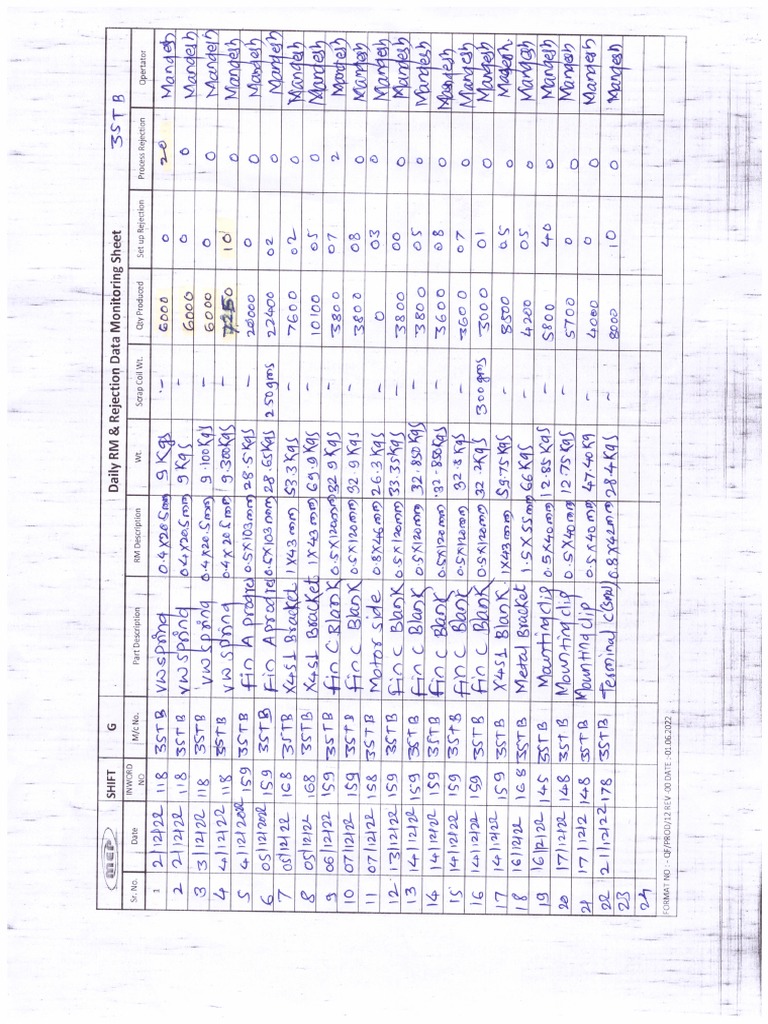 MEP SHIFT G Daily RM & Rejection Data Monitoring Sheet 35TB
Sr.No. Date INWORD NO M/c No. Part Description RM Description Wt. Scrap Coil Wt. Qty Produced Set up Rejection Process Rejection Opertator
1 2/12/22 118 35TB VW Spring 0.4X20.5mm 9 Kgs - 6000 0 20 Mandesh
2 2/12/22 118 35TB VW Spring 0.4X20.5mm 9 Kgs - 6000 0 0 Mandesh
3 3/12/22 118 35TB VW Spring 0.4X20.5mm 9.100Kgs - 6000 0 0 Mandesh
4 4/12/22 118 35TB VW Spring 0.4X20.5mm 9.300Kgs - 7250 10 0 Mandesh
5 4/12/2022 159 35TB Fin A progre 0.5X103mm 28.5Kgs - 20000 0 0 Mandesh
6 05/12/2022 159 35TB Fin A progre 0.5X103mm 28.65Kgs 250gms 22400 02 0 Mandesh
7 05/12/22 168 35TB X451 Bracket 1X43mm 53.3Kgs - 7600 02 0 Mandesh
8 05/12/22 168 35TB X451 Bracket 1X43mm 69.9Kgs - 10100 05 0 Mandesh
9 06/12/22 159 35TB Fin C Blank 0.5X120mm 32.9Kgs - 3800 07 2 Mandesh
10 07/12/22 159 35TB Fin C Blank 0.5X120mm 32.9Kgs - 3800 08 0 Mandesh
11 07/12/22 158 35TB Motor side 0.8X46mm 26.3Kgs - 0 03 0 Mandesh
12 13/12/22 159 35TB Fin C Blank 0.5X120mm 33.35Kgs - 3800 00 0 Mandesh
13 14/12/22 159 35TB Fin C Blank 0.5X120mm 32.850Kgs - 3800 05 0 Mandesh
14 14/12/22 159 35TB Fin C Blank 0.5X120mm 32.850Kgs - 3600 08 0 Mandesh
15 14/12/22 159 35TB Fin C Blank 0.5X120mm 32.8Kgs - 3600 07 0 Mandesh
16 14/12/22 159 35TB Fin C Blank 0.5X120mm 32.2Kgs 300gms 3000 01 0 Mandesh
17 14/12/22 159 35TB X451 Blank. 1X43mm 59.75Kgs - 8500 05 0 Mandesh
18 16/12/22 168 35TB Metal Bracket 1.5X55mm 66Kgs - 4200 05 0 Mandesh
19 16/12/22 145 35TB Mounting clip 0.5X40mm 12.85Kgs - 5800 40 0 Mandesh
20 17/12/22 148 35TB Mounting clip 0.5X40mm 12.75Kgs - 5700 0 0 Mandesh
21 17/12/2 148 35TB Mounting clip 0.5X40mm 47.40Kg - 4000 0 0 Mandesh
22 21/12/22 178 35TB Terminal C 0.8X42mm 28.4Kgs - 8000 10 0 Mandesh
23
24
FORMAT NO :- QF/PROD/12 REV -00 DATE -01.06.2022